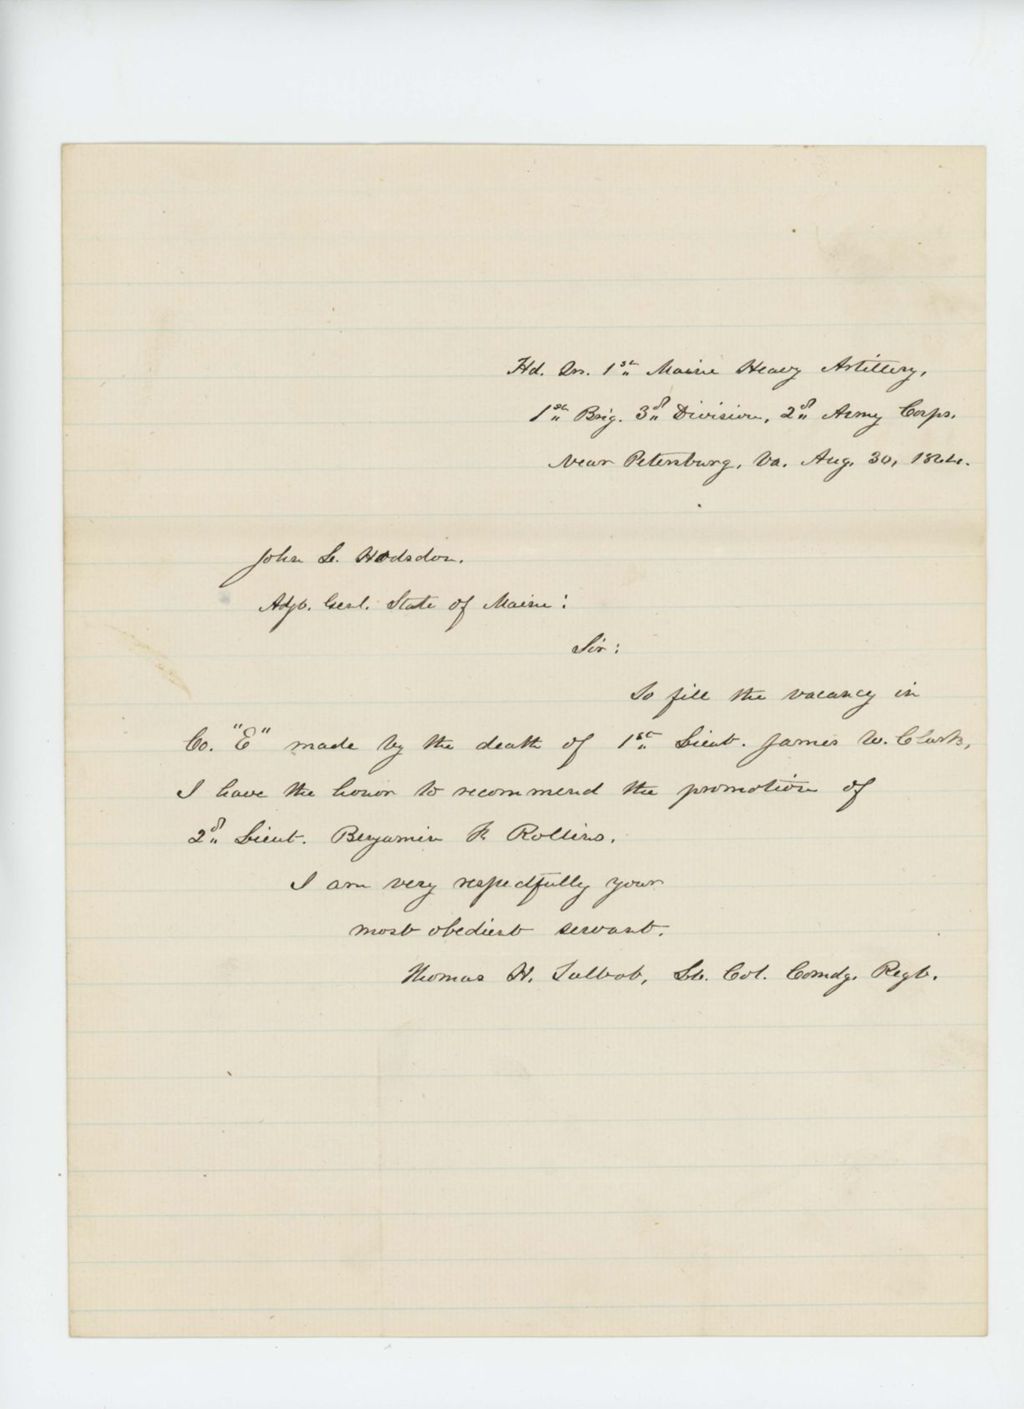 Hd. Qrs. 1st Maine Heavy Artillery,
1st Brig. 3d Division, 2d Army Corps.
Near Petersburg, Va. Aug. 30, 1864.
John L. Hodsdon.
Adjt. Genl. State of Maine:
Sir:
To fill the vacancy in
Co. "E" made by the death of 1st Lieut. James W. Clark,
I have the honor to recommend the promotion of
2d Lieut. Benjamin F. Rollins.
I am very respectfully your
most obedient servant.
Thomas H. Talbot, Lt. Col. Comdg. Regt.